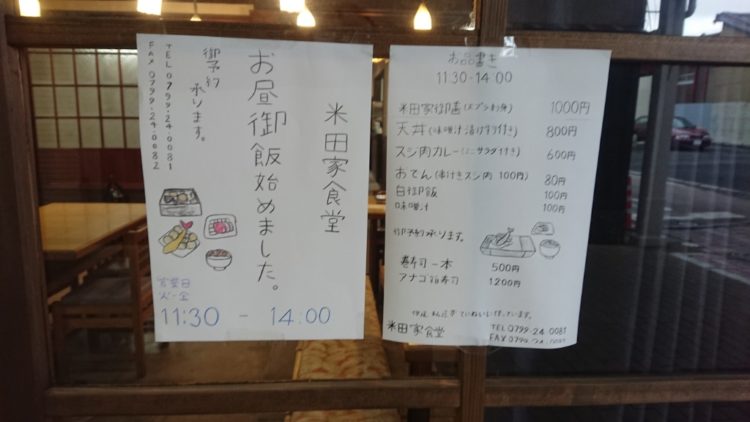 米田家食堂
お昼御飯始めました。
御予約
承ります。
TEL 0799-24-0081
FAX 0799-24-0082
営業日
火-金
11:30 - 14:00
お品書き
11:30-14:00
米田家御膳 1000円
天丼(味噌汁漬け物付き) 800円
スジ肉カレー(ミニサラダ付き) 600円
おでん(串付きスジ肉 100円) 80円
白御飯 100円
味噌汁 100円
御予約承ります。
巻寿司一本 500円
アナゴ箱寿司 1200円
米田家食堂
TEL 0799-24 0081
FAX 0799-24-0082